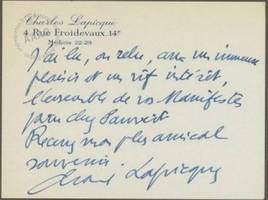 Charles Lapicque
4 Rue Froidevaux. 14e
Médicis 22-29
J'ai lu, ou relu, avec un immense
plaisir et un vif intérêt,
l'ensemble de vos Manifestes
paru chez Pauvert
Recevez mon plus amical
souvenir
Charles Lapicque